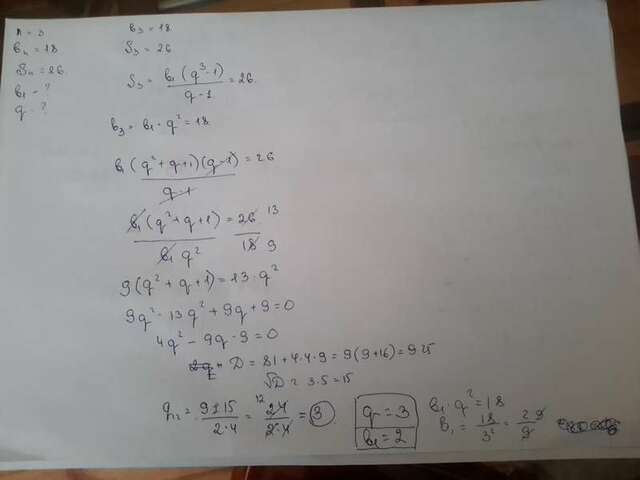 n = 3
b₃ = 18
bₙ = 18
S₃ = 26
Sₙ = 26
b₁ - ?
q - ?
S₃ = b₁(q³-1)/(q-1) = 26
b₃ = b₁ · q² = 18
b₁(q²+q+1)(q-1)/(q-1) = 26
b₁(q²+q+1)/(b₁q²) = 26/18 13/9
9(q²+q+1) = 13·q²
9q² - 13q² + 9q + 9 = 0
4q² - 9q - 9 = 0
D = 81 + 4·4·9 = 9(9+16) = 9·25
√D = 3·5 = 15
q₁₂ = (9±15)/(2·4) = 24/(2·4) = 3
q = 3
b₁ = 2
b₁·q² = 18
b₁ = 18/3² = 2·9/9